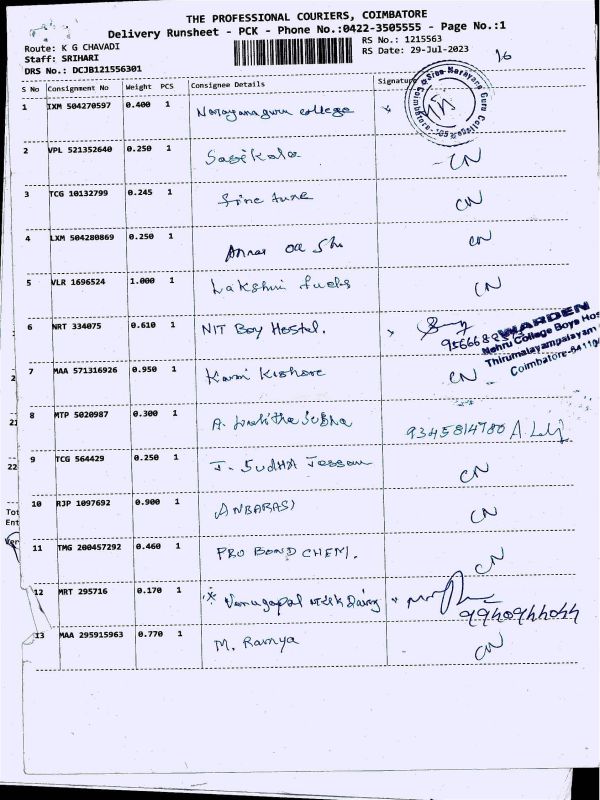 THE PROFESSIONAL COURIERS, COIMBATORE
Delivery Runsheet - PCK - Phone No.:0422-3505555 - Page No.:1
Route: K G CHAVADI
RS No.: 1215563
Staff: SRIHARI
RS Date: 29-Jul-2023
DRS No.: DCJB121556301
16
S No Consignment No Weight PCS Consignee Details Signature
1 IXM 504270597 0.400 1 Narayanaguru college
2 VPL 521352640 0.250 1 Sasikala CN
3 TCG 10132799 0.245 1 fine tune CN
4 LXM 504280869 0.250 1 CN
5 VLR 1696524 1.000 1 Lakshmi fuels CN
6 NRT 334075 0.610 1 NIT Boy Hostel.
WARDEN
Nehru College Boys Hos
Thirumalayampalayam
Coimbatore-64110
7 MAA 571316926 0.950 1 Kishore CN
8 MTP 5020987 0.300 1 A. Lalitha Subha 9345814780 A.
9 TCG 564429 0.250 1 J. SUDHA CN
10 RJP 1097692 0.900 1 ANBARASI CN
11 TMG 200457292 0.460 1 PRO BOND CHEM. CN
12 MRT 295716 0.170 1 Venugopal milk Dairy
9940944044
13 MAA 295915963 0.770 1 M. Ramya CN